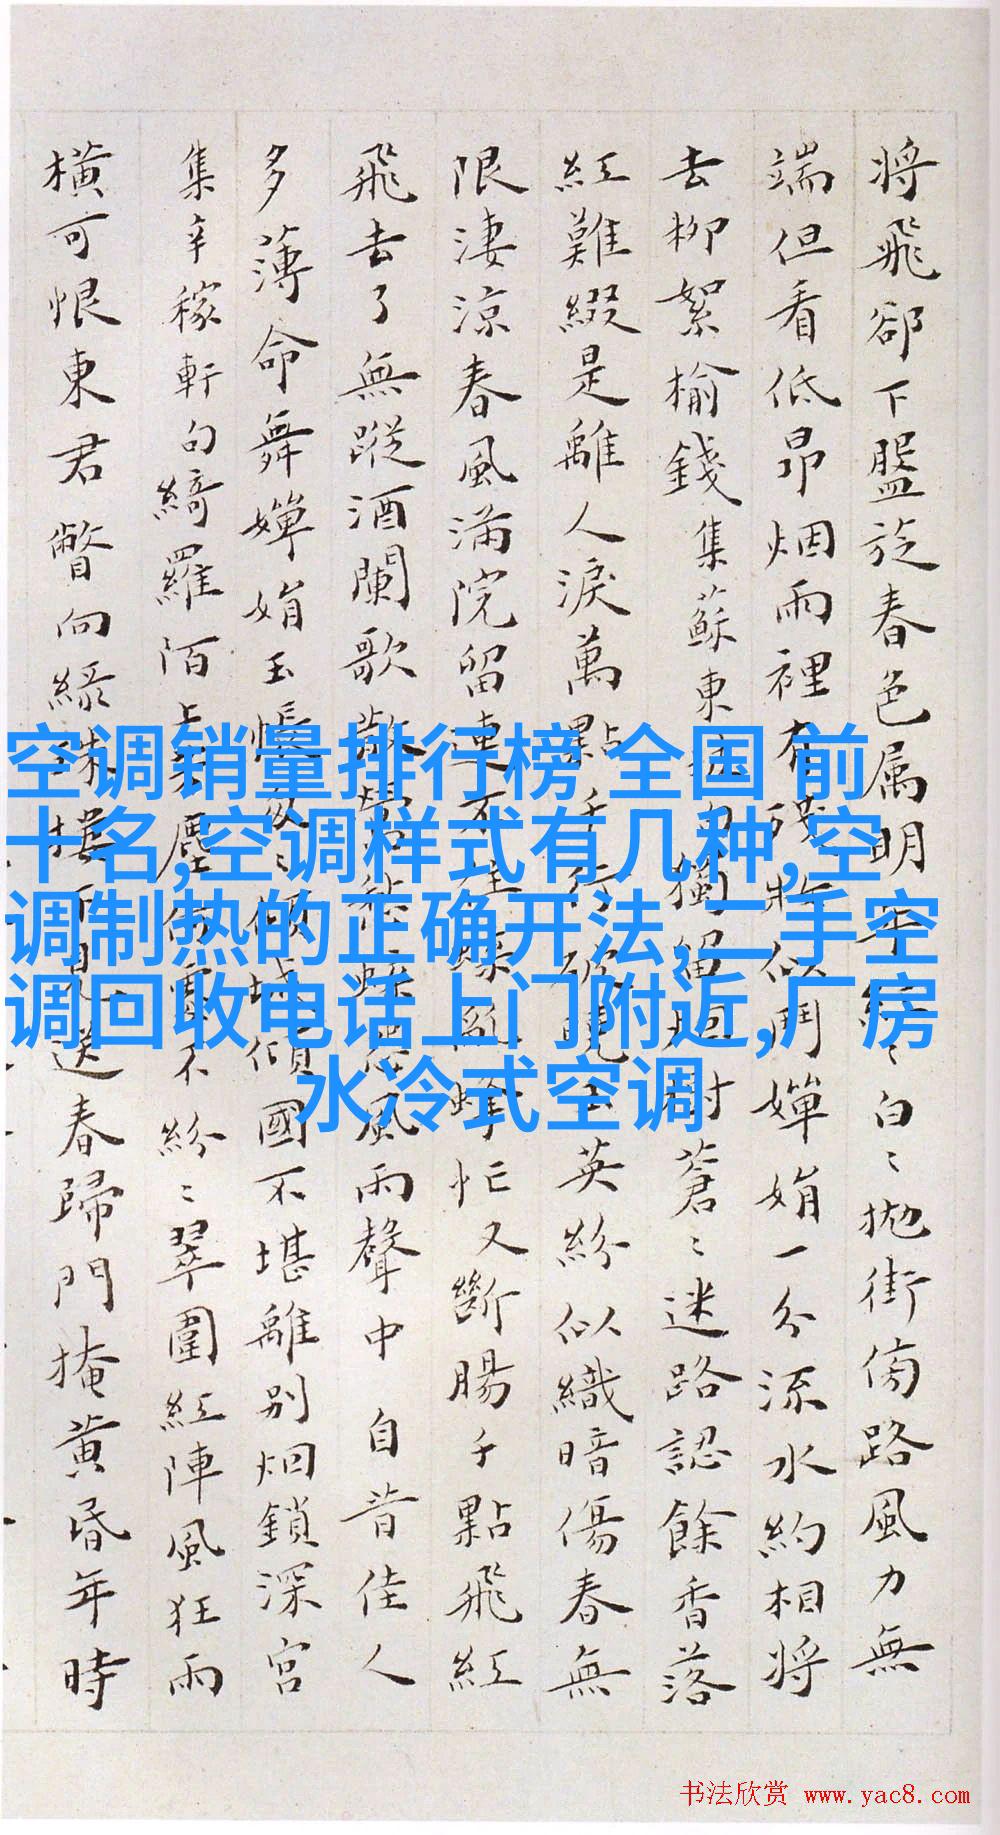 将飛卻下盤旋春色属明年紛〻白〻抛街傍路風力無
端但看低昂烟雨裡有似鬥嬋娟一分流水約相將
去柳絮榆錢集蘇東坡句獨留烟樹蒼〻迷路認餘香落
紅難綴是離人淚萬點英紛似織暗傷春無
限淒涼春風滿院留連不住蜂忙又斷腸千點飛紅
飛去了無蹤酒闌歌散風雨聲中自昔佳人
多薄命舞嬋娟玉悵傾城傾國不堪離別烟鎖深宮
集辛稼軒句綺羅陌上塵不紛〻翠圍紅陣風狂雨
橫可恨東君瞥向緑珠樓下見送春歸門掩黄昏年時
空调销量排行榜 全国 前
十名,空调样式有几种,空
调制热的正确开法,二手空
调回收电话上门附近,厂房
水冷式空调
书法欣赏 www.yac8.com